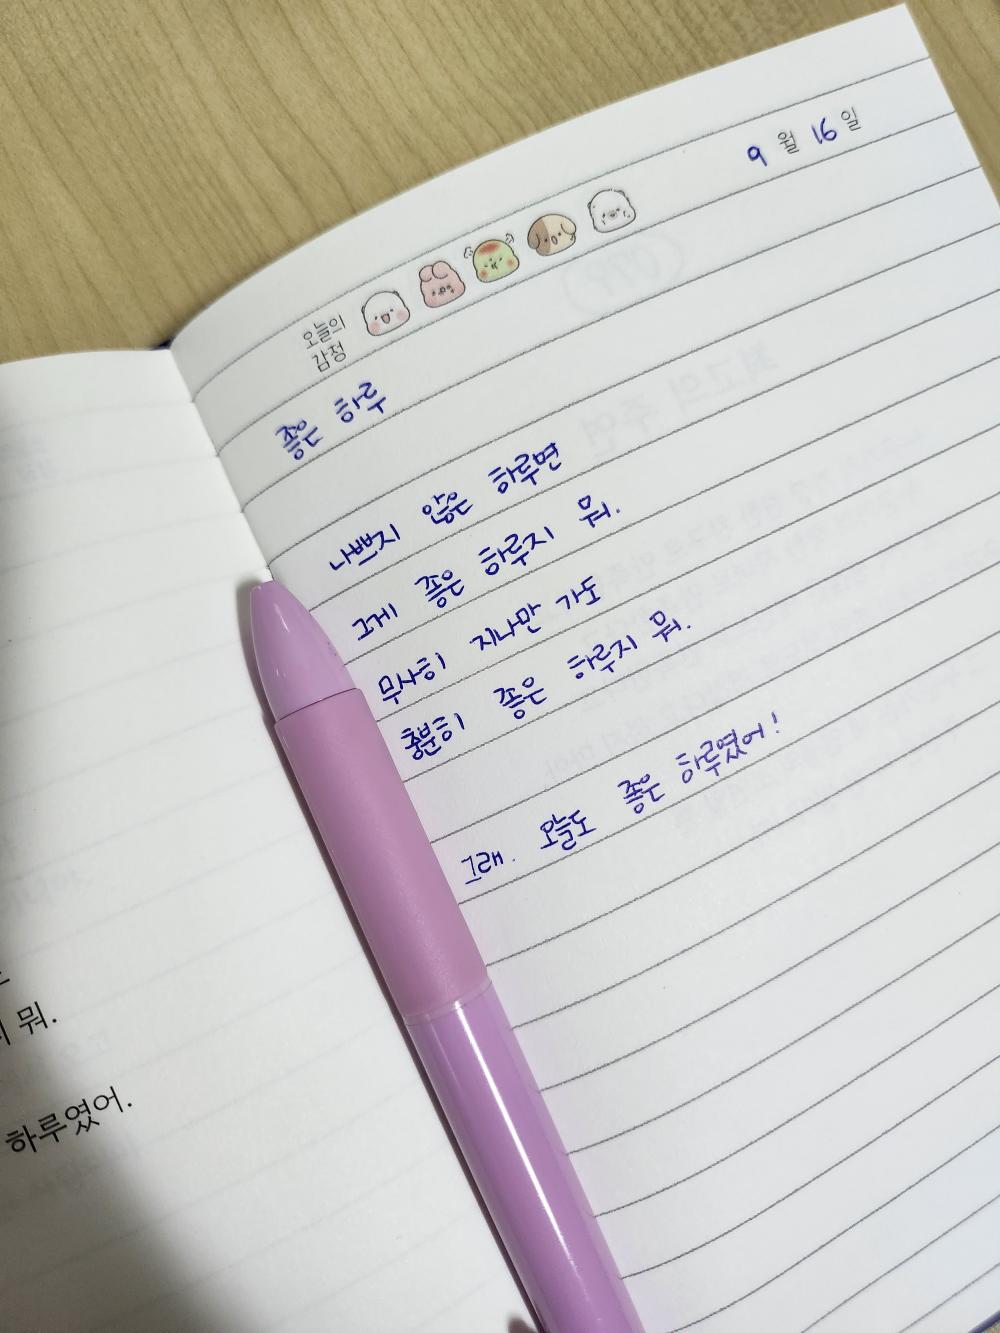 뭐.
하루였어.
9월 16일
오늘의
감정
좋은 하루
나쁘지 않은 하루면
그게 좋은 하루지 뭐.
무사히 지나만 가도
충분히 좋은 하루지 뭐.
그래. 오늘도 좋은 하루였어!